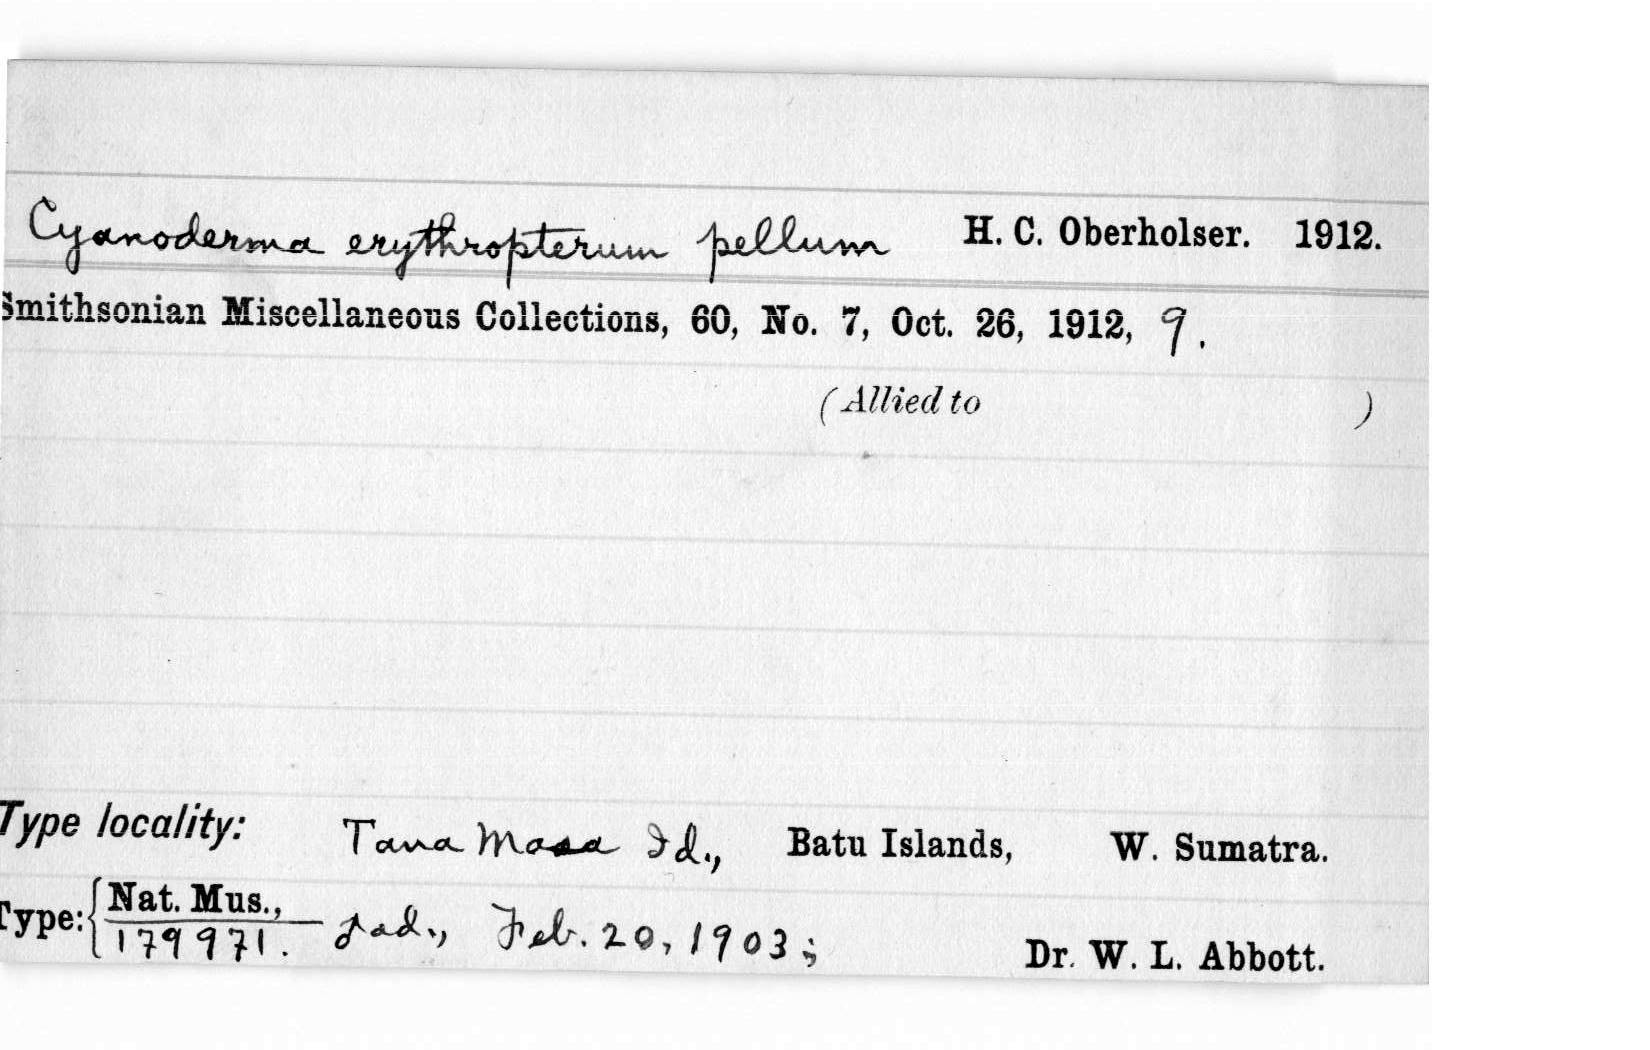 Cyanoderma erythropterum pellum H. C. Oberholser. 1912.
Smithsonian Miscellaneous Collections, 60, No. 7, Oct. 26, 1912, 9.
(Allied to )
Type locality: Tana Masa Id., Batu Islands, W. Sumatra.
Type: { Nat. Mus.,
179971. ♂ ad., Feb. 20, 1903; Dr. W. L. Abbott.